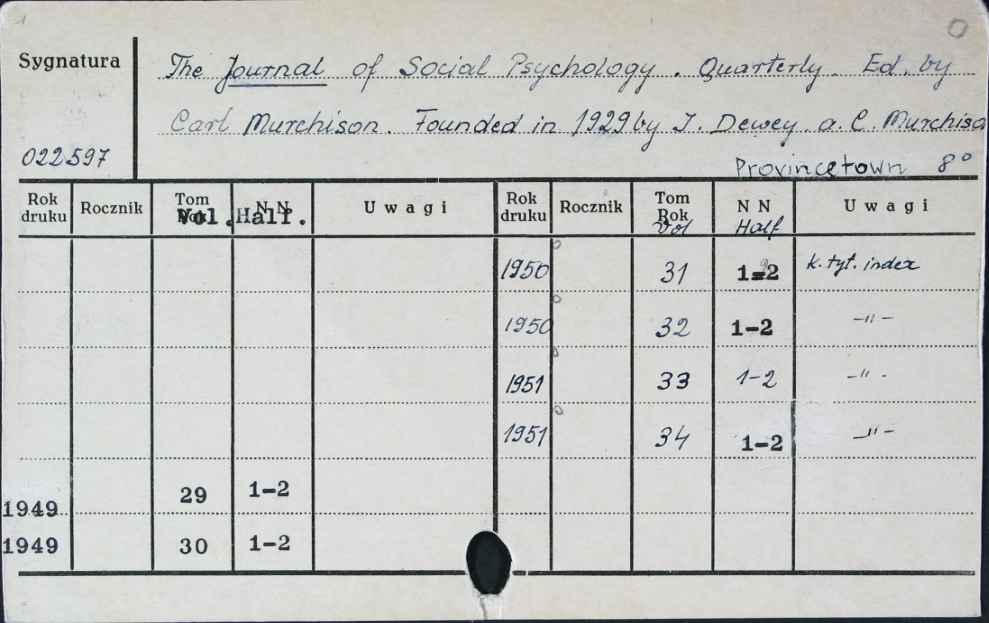 Sygnatura
The Journal of Social Psychology. Quarterly. Ed. by
Carl Murchison. Founded in 1929 by J. Dewey a. C. Murchiso
022597
Provincetown 8°
Rok druku Rocznik Tom Rok Vol. N N Half. Uwagi Rok druku Rocznik Tom Rok Vol N N Half Uwagi
1950 31 1-2 k. tyt. index
1950 32 1-2 -"-
1951 33 1-2 -"-
1951 34 1-2 -"-
1949 29 1-2
1949 30 1-2